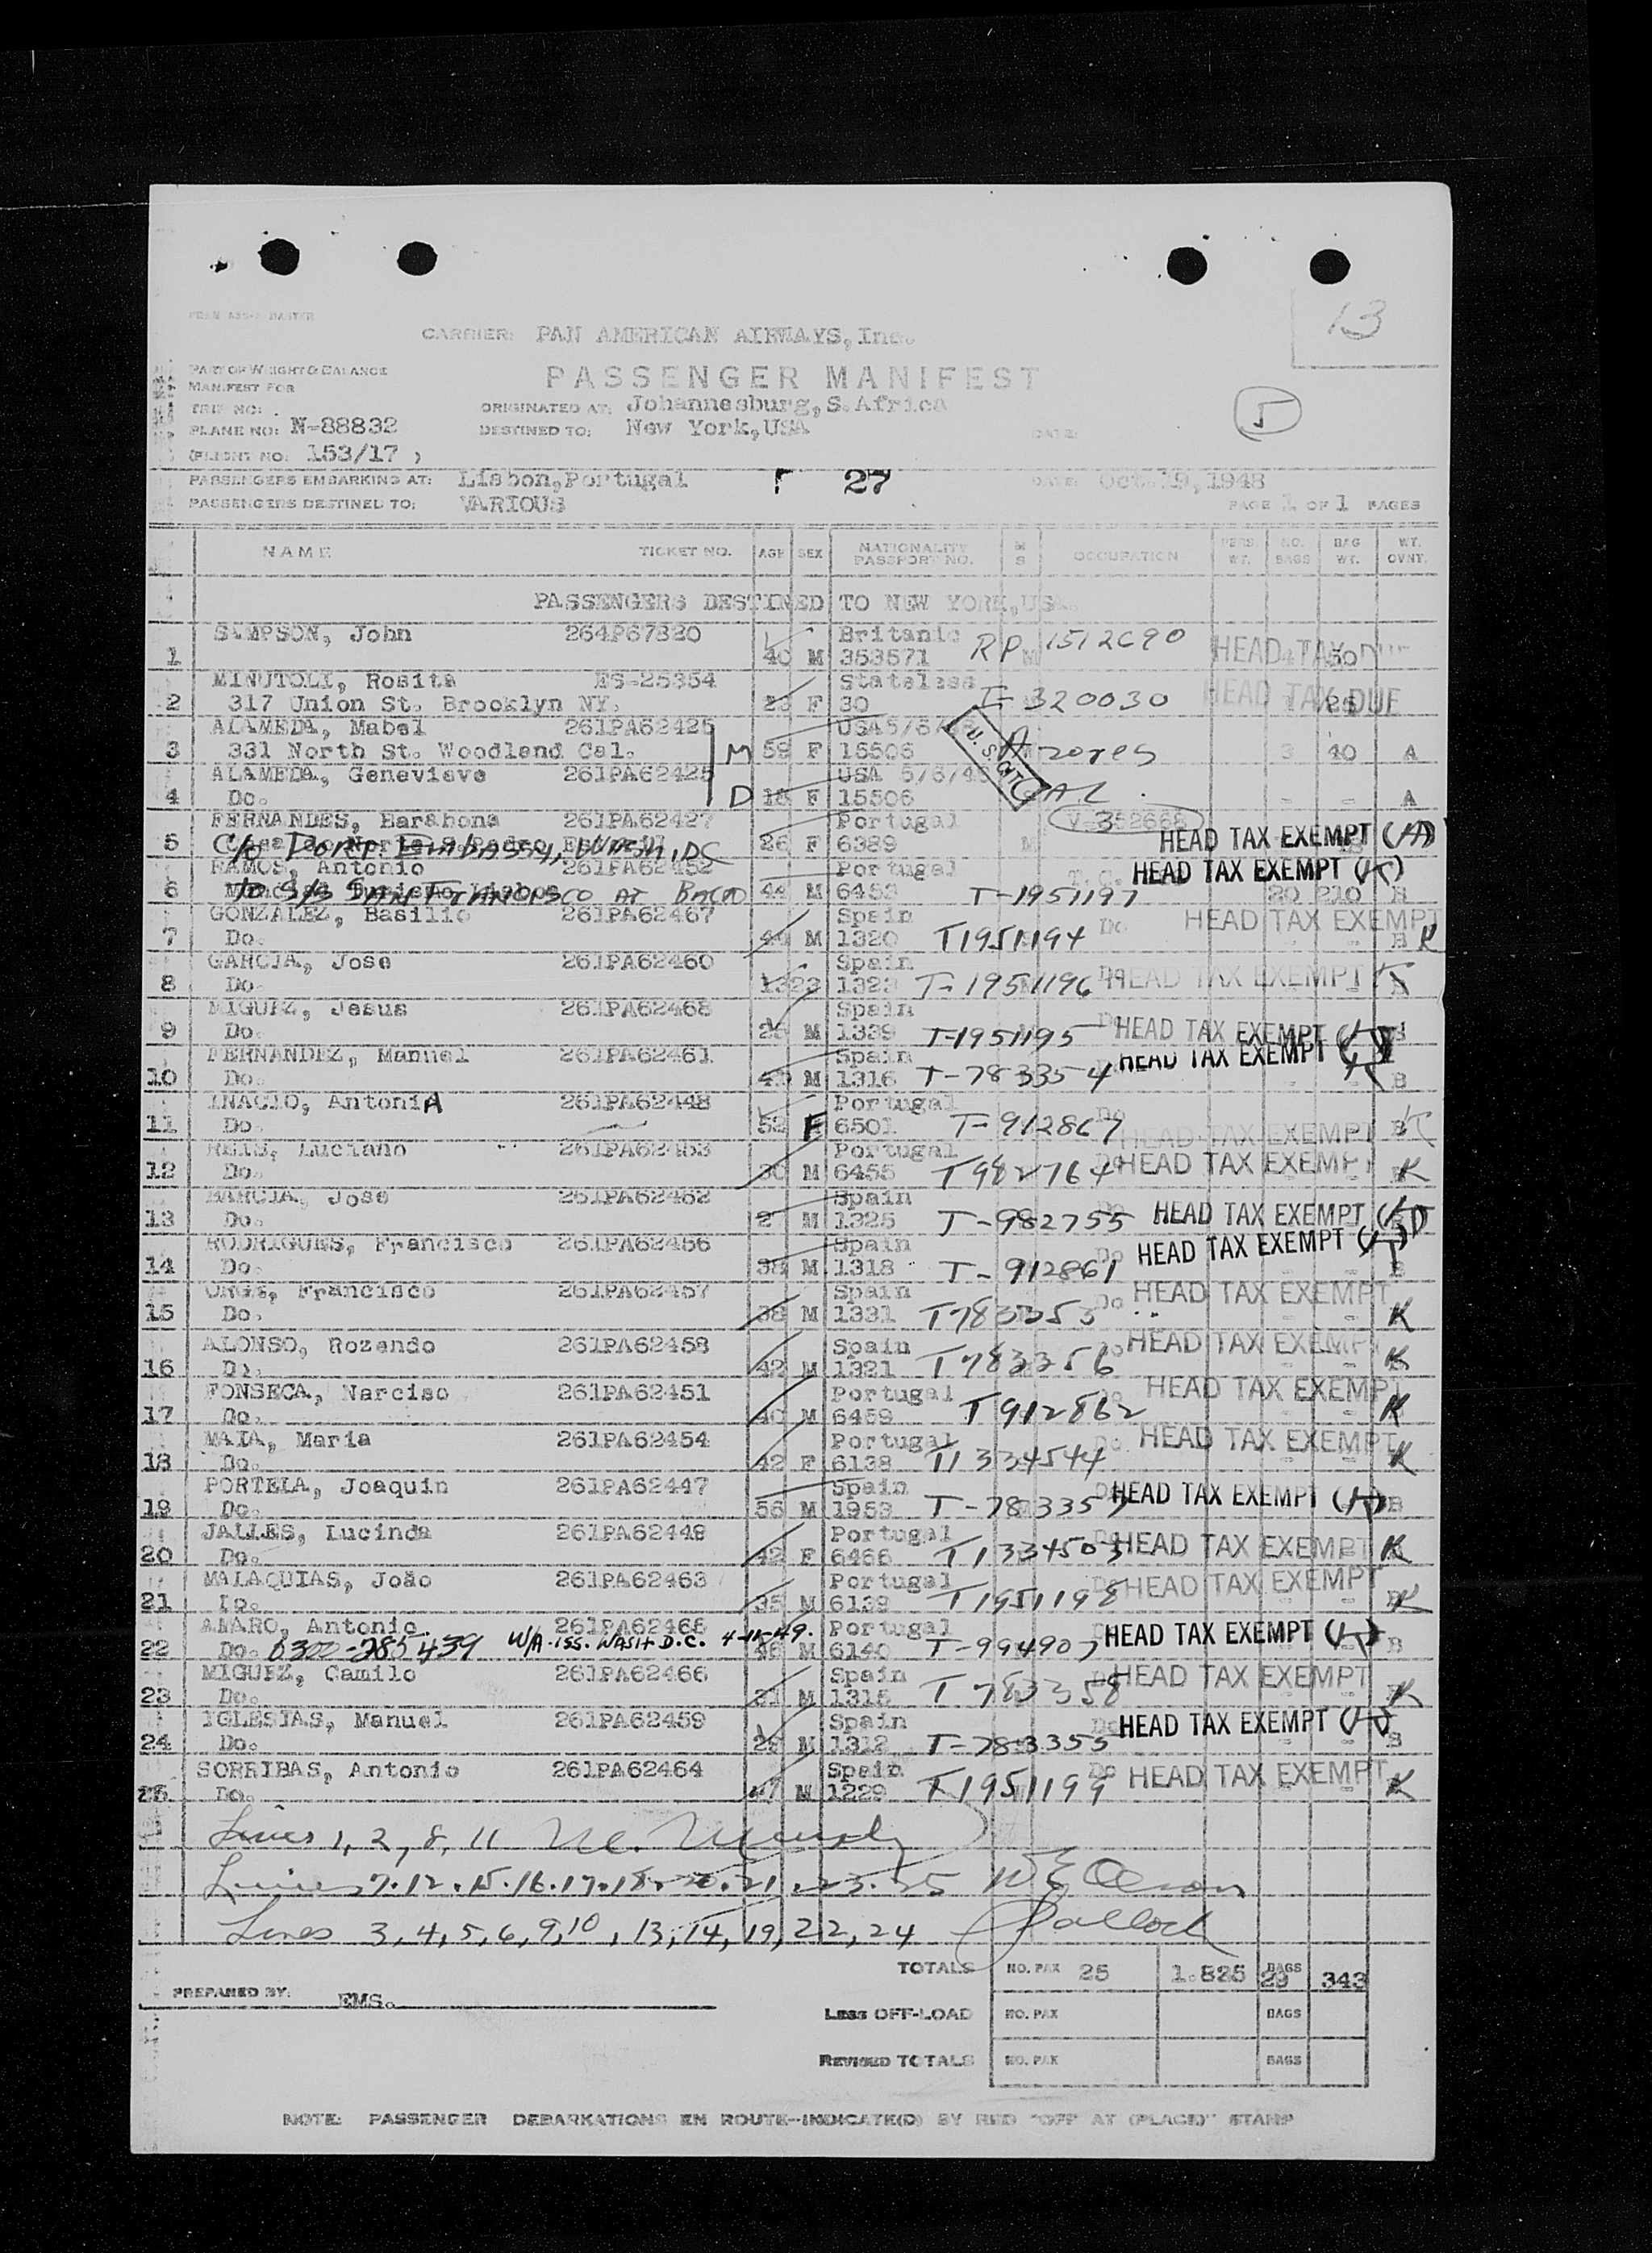 13
CARRIER: PAN AMERICAN AIRWAYS, Inc.
PART OF WEIGHT & BALANCE
MANIFEST FOR
PASSENGER MANIFEST
TRIP NO:
ORIGINATED AT: Johannesburg, S. Africa
5
PLANE NO: N-88832
DESTINED TO: New York, USA
DATE:
(FLIGHT NO: 153/17 )
PASSENGERS EMBARKING AT: Lisbon, Portugal 27 DATE: Oct. 19, 1948
PASSENGERS DESTINED TO: VARIOUS PAGE 1 OF 1 PAGES
NAME TICKET NO. AGE SEX NATIONALITY PASSPORT NO. M S OCCUPATION PERS. WT. NO. BAGS BAG WT. WT. OVNT.
PASSENGERS DESTINED TO NEW YORK, USA.
SAMPSON, John 264P67320 Britanic RP 1512690 HEAD TAX DUE
1 40 M 353571 M 50
MINUTOLI, Rosita ES-25354 Stateless HEAD TAX DUE
2 317 Union St. Brooklyn NY. F 30 T-320030
ALAMEDA, Mabel 261PA62425 USA 5/6/48
3 331 North St. Woodland Cal. M 59 F 15506 U.S. CIT Azores 3 40 A
ALAMEDA, Genevieve 261PA62425 USA 5/6/48
4 Do. D 18 F 15506 CAL. - - A
FERNANDES, Barahona 261PA62427 Portugal V-352668
5 c/o PORT. EMBASSY, WASH, DC 26 F 6389 M HEAD TAX EXEMPT
RAMOS, Antonio 261PA62452 Portugal HEAD TAX EXEMPT
6 to S/S SAN FRANCISCO AT 44 M 6453 T-1951197 20 210 B
GONZALEZ, Basilio 261PA62467 Spain Do HEAD TAX EXEMPT
7 Do. M 1320 T1951194 - - B K
GARCIA, Jose 261PA62460 Spain
8 Do. 1323 T-1951196 HEAD TAX EXEMPT
MIGUEZ, Jesus 261PA62468 Spain
9 Do. M 1339 T-1951195 HEAD TAX EXEMPT
FERNANDEZ, Manuel 261PA62461 Spain HEAD TAX EXEMPT
10 Do. M 1316 T-783354 - - B
INACIO, AntoniA 261PA62448 Portugal
11 Do. 52 F 6501 T-912867 HEAD TAX EXEMPT B
REIS, Luciano 261PA62453 Portugal
12 Do. 30 M 6455 T982764 HEAD TAX EXEMPT K
GARCIA, Jose 261PA62462 Spain
13 Do. M 1325 T-982755 HEAD TAX EXEMPT
RODRIGUES, Francisco 261PA62456 Spain HEAD TAX EXEMPT
14 Do. 38 M 1318 T-912861 - - B
Francisco 261PA62457 Spain HEAD TAX EXEMPT
15 Do. 38 M 1331 T783353 Do - - K
ALONSO, Rozendo 261PA62458 Spain HEAD TAX EXEMPT
16 Do. 42 M 1321 T783356 - - K
FONSECA, Narciso 261PA62451 Portugal HEAD TAX EXEMPT
17 Do. 40 M 6459 T912862 K
MAIA, Maria 261PA62454 Portugal Do. HEAD TAX EXEMPT
18 Do. 42 F 6138 T1334544 - - K
PORTELA, Joaquin 261PA62447 Spain
19 Do. 56 M 1953 T-783357 HEAD TAX EXEMPT B
JALLES, Lucinda 261PA62449 Portugal
20 Do. 42 F 6466 T1334503 HEAD TAX EXEMPT K
MALAQUIAS, João 261PA62463 Portugal HEAD TAX EXEMPT
21 Do. 35 M 6139 T1951198 K
AMARO, Antonio. 261PA62465 Portugal
22 Do. 0300-285439 W/A. ISS. WASH D.C. 4-11-49. 46 M 6140 T-994907 HEAD TAX EXEMPT B
MIGUEZ, Camilo 261PA62466 Spain HEAD TAX EXEMPT
23 Do. 31 M 1315 T783358 K
IGLESIAS, Manuel 261PA62459 Spain HEAD TAX EXEMPT
24 Do. 28 M 1312 T-783355 - - B
SORRIBAS, Antonio 261PA62464 Spain Do HEAD TAX EXEMPT
25 Do. 47 M 1229 T1951199 - - K
Lines 1, 2, 8, 11
Lines 7. 12. 15. 16. 17. 18. 20. 21. 23. 25 W E Olson
Lines 3, 4, 5, 6, 9, 10, 13, 14, 19, 22, 24
TOTALS NO. PAX 25 1.825 BAGS 29 343
PREPARED BY: EMS.
Less OFF-LOAD NO. PAX BAGS
REVISED TOTALS NO. PAX BAGS
NOTE: PASSENGER DEBARKATIONS EN ROUTE--INDICATE(D) BY RED "OFF AT (PLACE)" STAMP